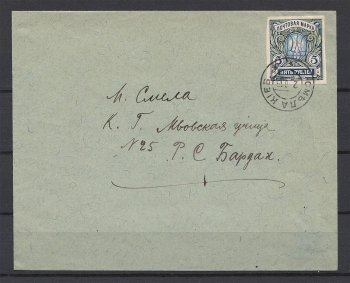 ПОЧТОВАЯ МАРКА
5 5
ПЯТЬ РУБЛЕЙ
СМѢЛА КІЕВ
М. Смела
К. Г. Мвовская улица
№ 25 Р. С. Бардах.